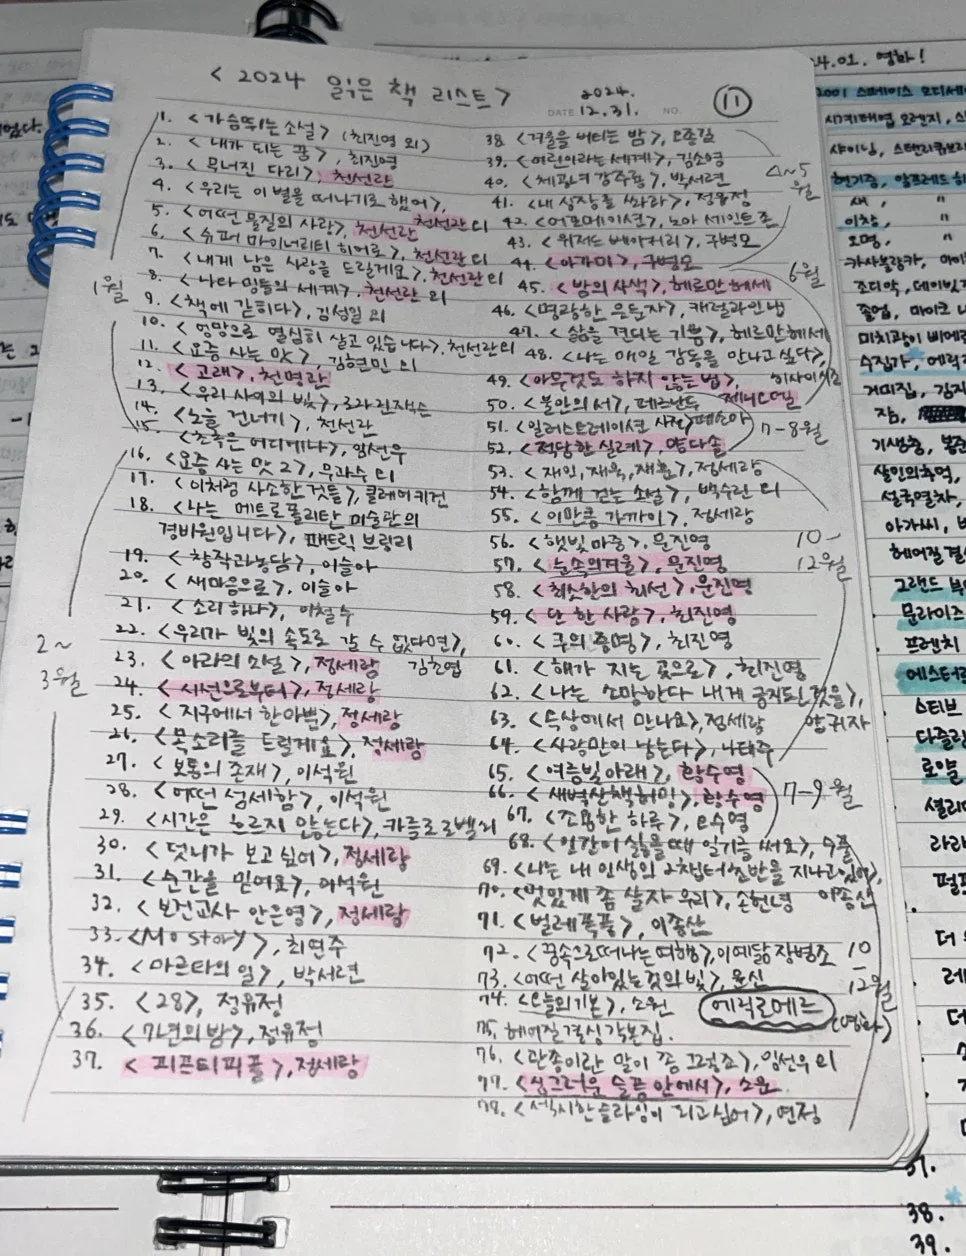 < 2024 읽은 책 리스트 >
2024.
DATE 12.31. NO. 11
1. <가슴뛰는 소설> (최진영 외)
2. <내가 되는 꿈>, 최진영
3. <무너진 다리>, 천선란
4. <우리는 이별을 떠나기로 했어>,
5. <어떤 물질의 사랑>, 천선란 천선란 외
6. <슈퍼 마이너리티 히어로>, 천선란 외
7. <내게 남은 사랑을 드릴게요>, 천선란 외
8. <나라 잃음들의 세계>, 천선란 외
1월
9. <책에 갇히다>, 김성일 외
10. <엉망으로 열심히 살고 있습니다>, 천선란 외
11. <요즘 사는 맛>, 김현민 외
12. <고래>, 천명관
13. <우리 사이의 빛>,
14. <노을 건너기>, 천선란
15. <초록은 어디에나>, 임선우
16. <요즘 사는 맛 2>, 무과수 외
17. <이처럼 사소한 것들>, 클레어 키건
18. <나는 메트로폴리탄 미술관의
경비원입니다>, 패트릭 브링리
19. <창작과 농담>, 이슬아
20. <새 마음으로>, 이슬아
21. <소리 하나>, 이철수
22. <우리가 빛의 속도로 갈 수 없다면>,
2~
3월
23. <아라의 소설>, 정세랑 김초엽
24. <시선으로부터>, 정세랑
25. <지구에서 한아뿐>, 정세랑
26. <목소리를 드릴게요>, 정세랑
27. <보통의 존재>, 이석원
28. <어떤 섬세함>, 이석원
29. <시간은 흐르지 않는다>, 카를로 로벨리
30. <덧니가 보고 싶어>, 정세랑
31. <순간을 믿어요>, 이석원
32. <보건교사 안은영>, 정세랑
33. <Mo story>, 최연주
34. <마르타의 일>, 박서련
35. <28>, 정유정
36. <7년의 밤>, 정유정
37. <피프티 피플>, 정세랑
38. <겨울을 버티는 밤>,
39. <어린이라는 세계>, 김소영
40. <체공녀 강주룡>, 박서련
5월
41. <내 심장을 쏴라>, 정유정
42. <어포메이션>, 노아 세인트 존
43. <위저드 베이커리>, 구병모
44. <아가미>, 구병모
6월
45. <밤의 사색>, 헤르만 헤세
46. <명랑한 은둔자>, 캐럴라인 냅
47. <삶을 견디는 기쁨>, 헤르만 헤세
48. <나는 매일 감동을 만나고 싶다>,
49. <아무것도 하지 않는 법>, 히사이시 조
50. <불안의 서>, 페르난두 제니 오델
51. <일러스트레이션 사전> 페소아
7-8월
52. <적당한 실례>, 양다솔
53. <재인, 재욱, 재훈>, 정세랑
54. <함께 걷는 소설>, 백수린 외
55. <이만큼 가까이>, 정세랑
56. <햇빛 마중>, 문진영
10-
12월
57. <눈속의 겨울>, 문진영
58. <최소한의 최선>, 문진영
59. <단 한 사람>, 최진영
60. <구의 증명>, 최진영
61. <해가 지는 곳으로>, 최진영
62. <나는 소망한다 내게 금지된 것을>,
63. <옥상에서 만나요>, 정세랑 양귀자
64. <사랑만이 남는다>, 나태주
65. <여름빛 아래>, 황수영
66. <새벽 산책 허밍>, 황수영
7-9월
67. <조용한 하루>, 오수영
68. <인간이 싫을 때 일기를 써요>,
69. <나는 내 인생의 2챕터 첫반을 지나고 있어>,
70. <멋있게 좀 살자 우리>, 손현녕 이종산
71. <벌레 폭풍>, 이종산
72. <꿈속으로 떠나는 여행>, 이예닮 장병조
10
-
12월
73. <어떤 살아있는 것의 빛>, 윤신
74. <오늘의 기본>, 소원 에릭로메르
(영화)
75. 헤어질 결심 각본집.
76. <관종이란 말이 좀 그렇죠>, 임선우 외
77. <싱그러운 슬픔 안에서>, 소운
78. <섹시한 슬라임이 되고 싶어>, 연정
4.01. 영화!
2001 스페이스 오디세
시계태엽 오렌지,
샤이닝, 스탠리 큐브
현기증, 알프레드 히
새, "
이창, "
로프, "
카사블랑카, 마이
조디악, 데이빗
졸업, 마이크 니
미치광이 삐에로
수집가, 에릭
거미집, 김지
잠,
기생충, 봉준
살인의 추억,
설국열차,
아가씨, 박
헤어질 결심
그랜드 부
문라이즈
프렌치
에스터로
스티브
다즐링
로얄
37.
38.
39.